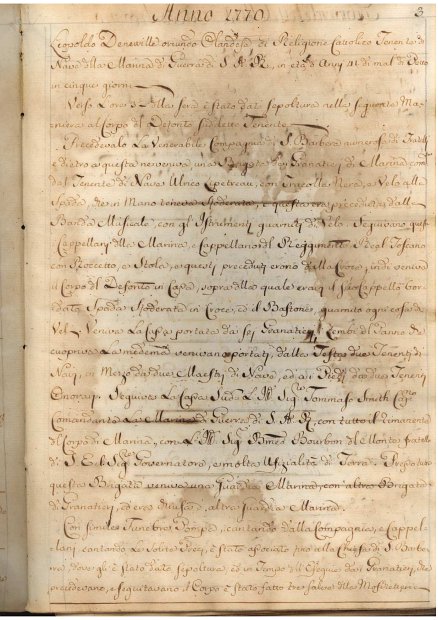 Anno 1770 3
Leopoldo Deneville oriundo Olandese di Religione Cattolico Tenente di
Nave della Marina di Guerra di S. A. R., in età d'Anni 41 di mal di Petto
in cinque giorni
Verso l'ore della sera è stato dato sepoltura nella seguente Ma-
niera al Corpo del Defonto suddetto Tenente
Precedevalo La Venerabile Compagnia di S. Barbera numerosa di Fratelli
e dietro a questa ne veniva una Brigata di Granatieri di Marina com-
dal Tenente di Nave con Tracolla Nera, e Velo alla
Spada, che in Mano teneva Sfoderata, e questa era preceduta dalla
Banda Musicale, con gli Istrumenti guarniti di Velo. Seguivano, quattro
Cappellani della Marina, e Cappellano del Reggimento Real Toscano
con Roccetto, e Stola, e questi preceduti erano dalla Croce, indi veniva
il Corpo del Defonto in Cassa, sopra della quale eravi il suo Cappello
Spada Sfoderata in Croce, ed il Bastone, guarnito ogni cosa di
Vel. Veniva La Cassa portata da sei Granatieri, i Lembi del Panno che
cuopriva La medema venivan portati, dalla Testa due Tenenti di
Navi, in Mezzo da due Maestri di Nave, ed ai Piedi da due Tenenti
Onorari. Seguiva La Cassa Sud.a L'Ill.mo Sig.re Tommaso Smith Cap.no
Comandante La Marina di Guerra di S. A. R. con tutto il rimanente
del Corpo di Marina, con L'Ill.mo Sig.re Bourbon del Monte fratello
di S. E. il Sig.re Governatore, e molta Ufizialità di Terra.
questa Brigata veniva una Guardia Marina, con altra Brigata
di Granatieri, ed eravi altra Guardia Marina.
Con simile Funebre Pompa, cantando dalla Compagnia, e Cappel-
lani cantando Le solite Preci, è stato associato fino alla Chiesa di S. Barbe-
ra, dove gli è stato dato sepoltura, ed in Tempo dell'Esequie dai Granatieri, che
precedevano, e seguitavano il Corpo è stato fatto tre salve della Moschetteria